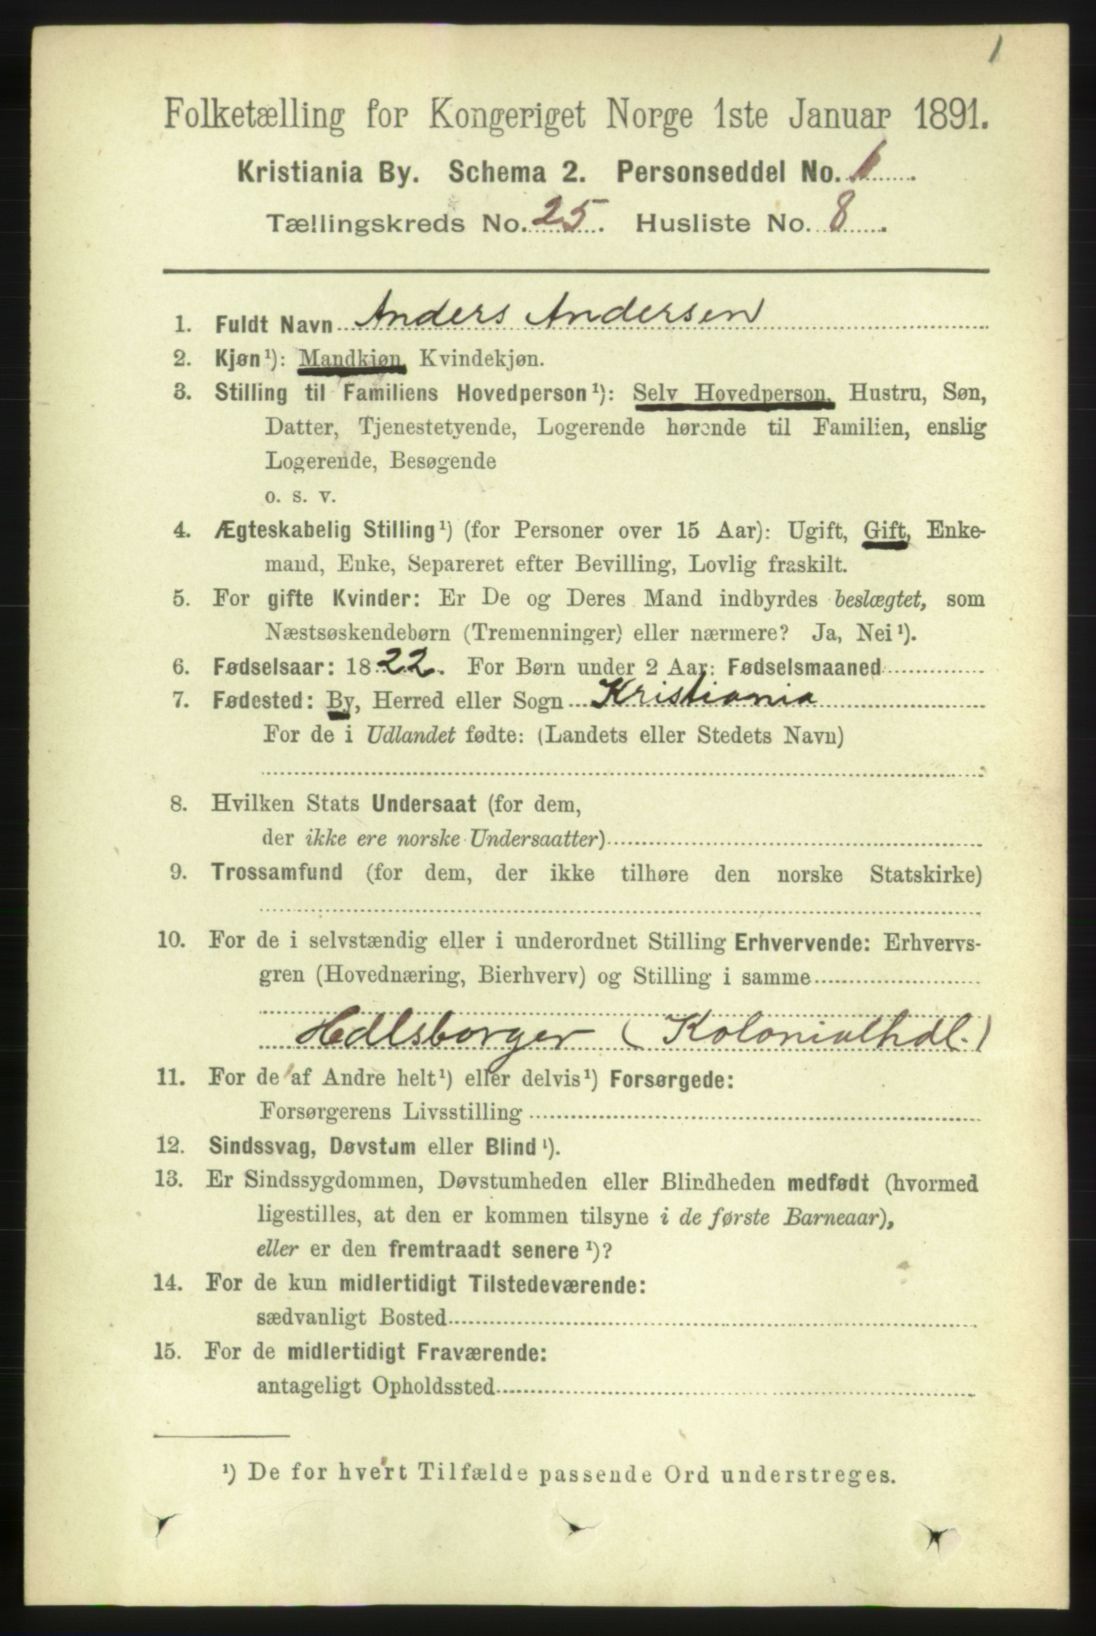 1
Folketælling for Kongeriget Norge 1ste Januar 1891.
Kristiania By. Schema 2. Personseddel No.
Tællingskreds No. 25. Husliste No. 8.
1. Fuldt Navn Anders Andersen
2. Kjøn¹): Mandkjøn, Kvindekjøn.
3. Stilling til Familiens Hovedperson¹): Selv Hovedperson, Hustru, Søn,
Datter, Tjenestetyende, Logerende hørende til Familien, enslig
Logerende, Besøgende
o. s. v.
4. Ægteskabelig Stilling¹) (for Personer over 15 Aar): Ugift, Gift, Enke-
mand, Enke, Separeret efter Bevilling, Lovlig fraskilt.
5. For gifte Kvinder: Er De og Deres Mand indbyrdes beslægtet, som
Næstsøskendebørn (Tremenninger) eller nærmere? Ja, Nei¹).
6. Fødselsaar: 1822. For Børn under 2 Aar: Fødselsmaaned
7. Fødested: By, Herred eller Sogn Kristiania
For de i Udlandet fødte: (Landets eller Stedets Navn)
8. Hvilken Stats Undersaat (for dem,
der ikke ere norske Undersaatter)
9. Trossamfund (for dem, der ikke tilhøre den norske Statskirke)
10. For de i selvstændig eller i underordnet Stilling Erhvervende: Erhvervs-
gren (Hovednæring, Bierhverv) og Stilling i samme
Hdlsborger (Kolonialhdl.)
11. For de af Andre helt¹) eller delvis¹) Forsørgede:
Forsørgerens Livsstilling
12. Sindssvag, Døvstum eller Blind¹).
13. Er Sindssygdommen, Døvstumheden eller Blindheden medfødt (hvormed
ligestilles, at den er kommen tilsyne i de første Barneaar),
eller er den fremtraadt senere¹)?
14. For de kun midlertidigt Tilstedeværende:
sædvanligt Bosted
15. For de midlertidigt Fraværende:
antageligt Opholdssted
¹) De for hvert Tilfælde passende Ord understreges.